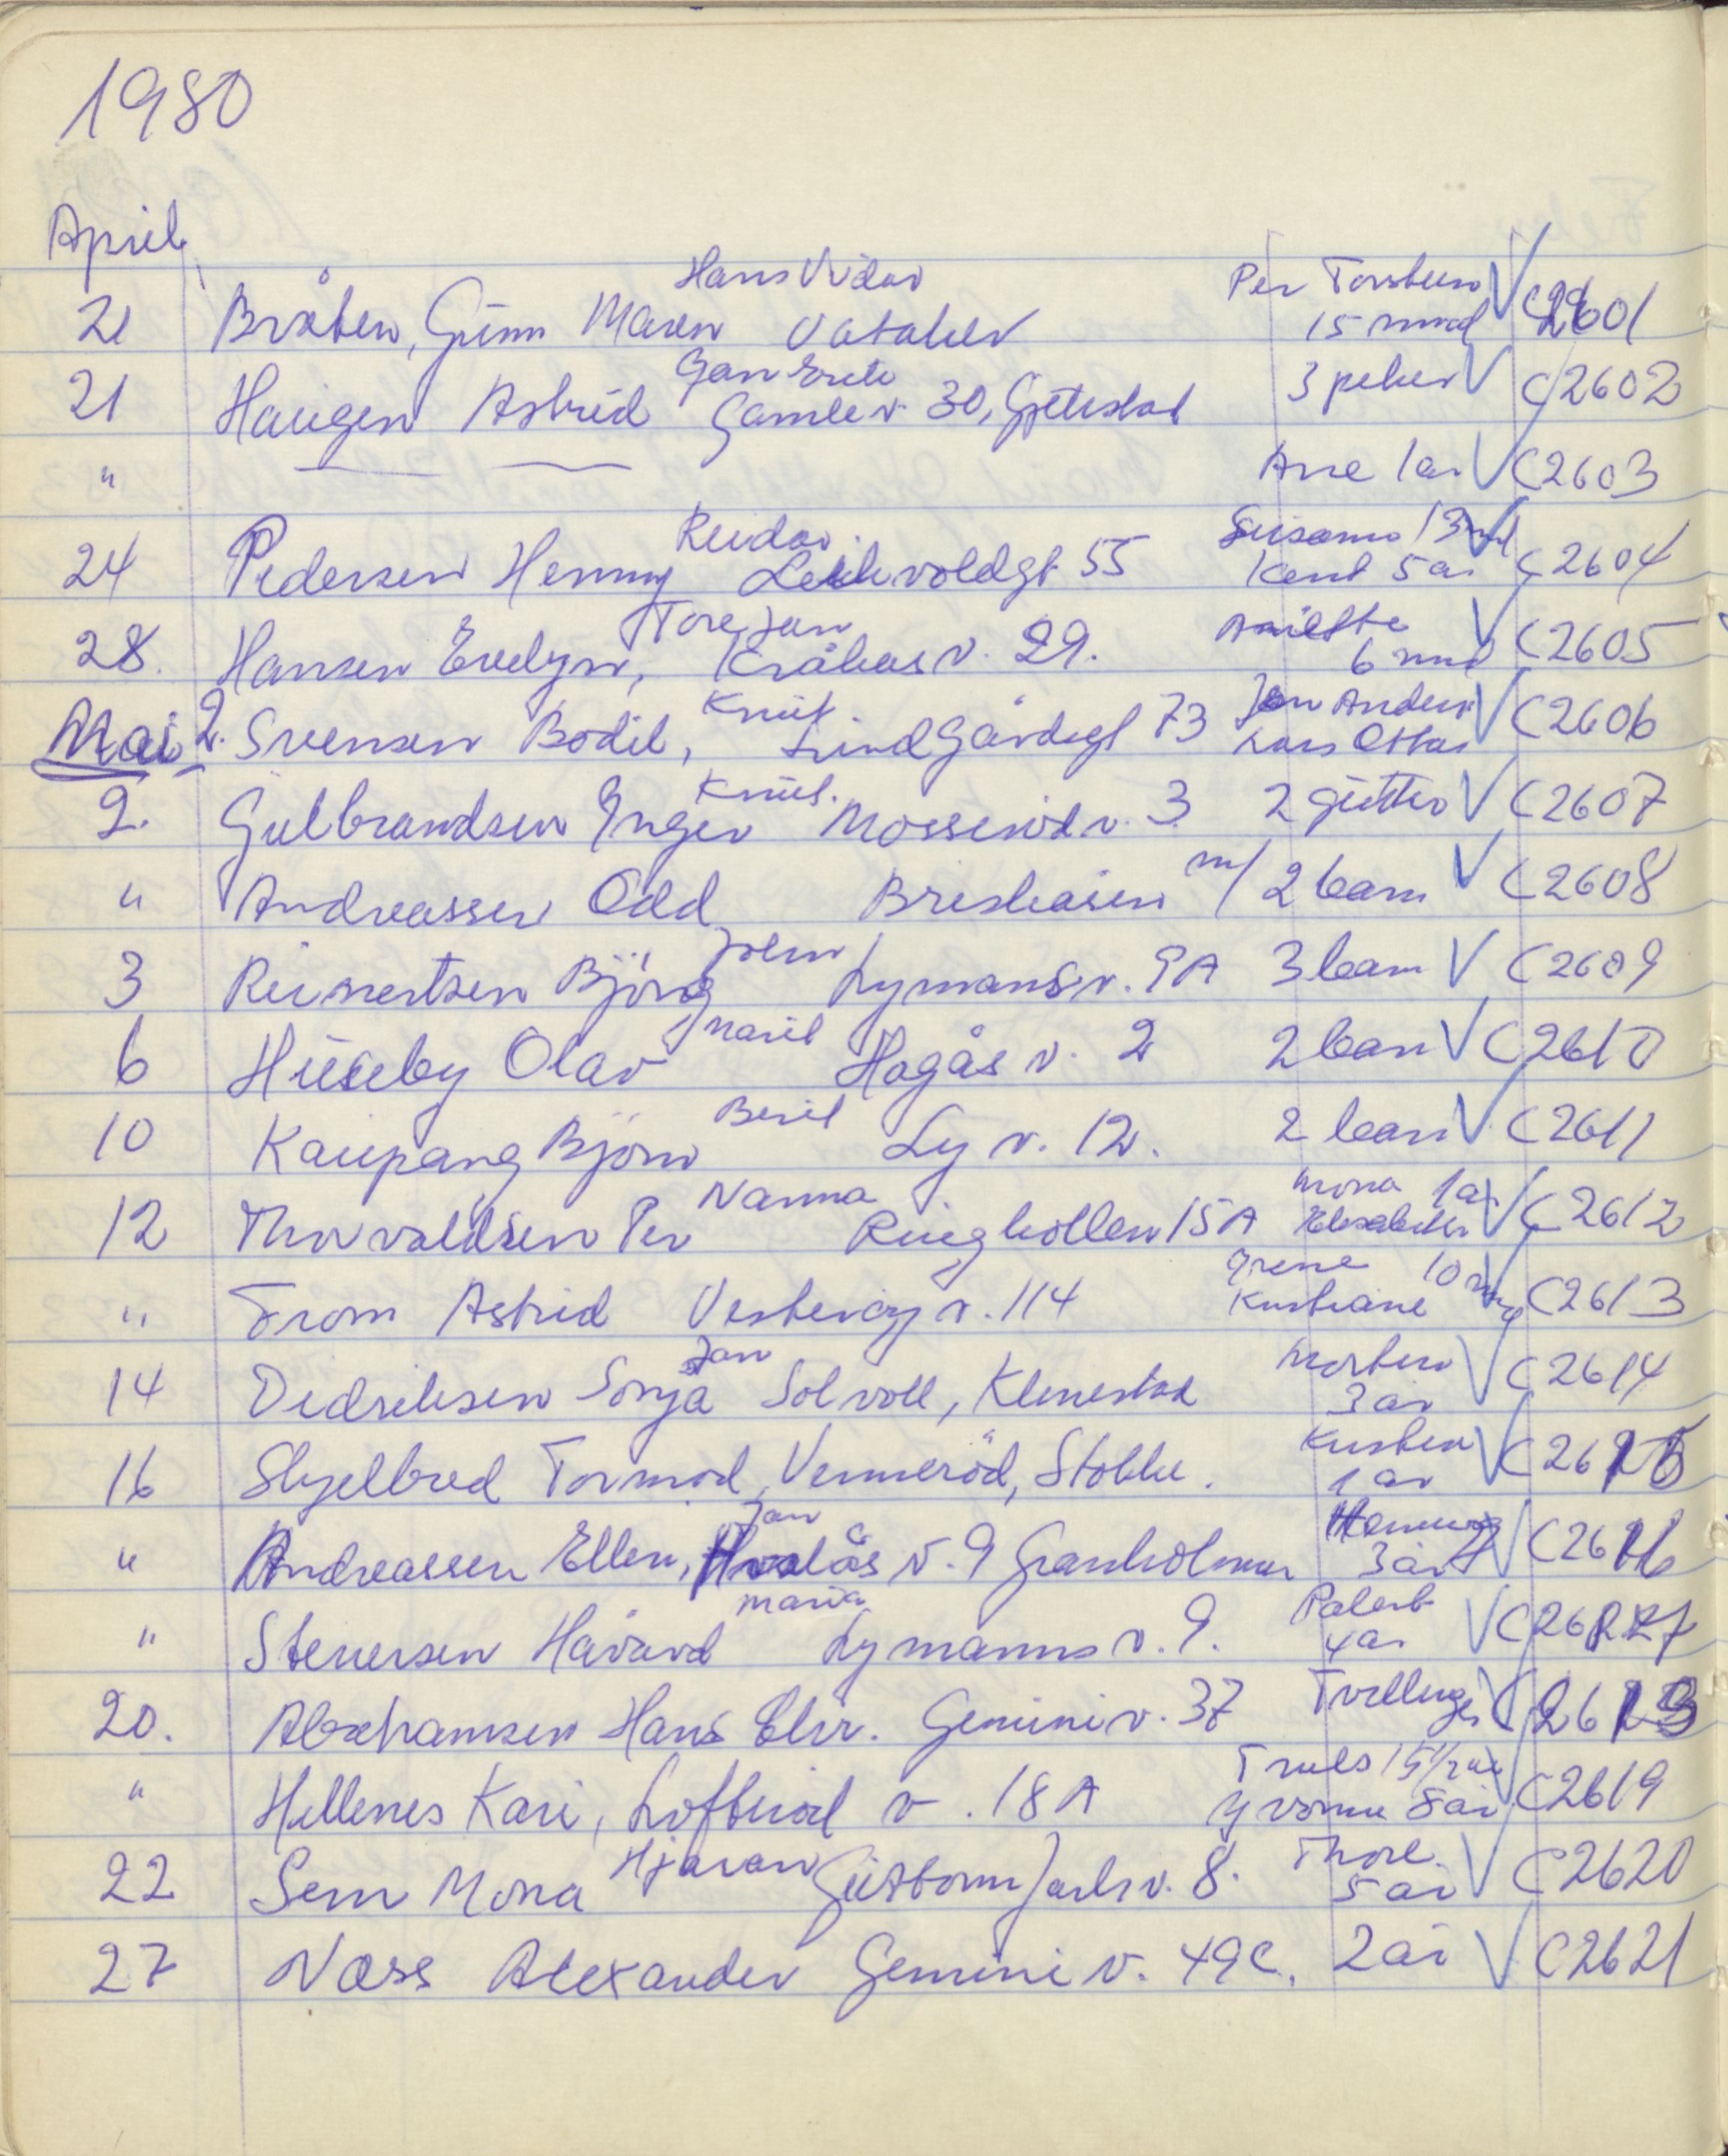 1980
April
Hans Vidar Per Torstein
21 Bråten, Gunn Maren Vataker 15 mnd C2601
Jan Erik
21 Haugen Astrid Gamlev. 30, Gjetestad 3 piker C2602
" Ane 1 år C2603
Reidar. Susann 13 mnd
24 Pedersen Henny voldgt 55 Kent 5 år C2604
Tore Jan
28. Hansen Evelyn, Kråkåsv. 29. 6 mnd C2605
Knut. Jon Anders
Mai 2. Svensen Bodil, Lindgårdsgt 73 Lars Ottar C2606
Knut.
2. Gulbrandsen Inger Mosserødv. 3 2 gutter C2607
" Andreassen Odd Breskåsen m/ 2 barn C2608
John
3 Reinertsen Bjørg Lymannsv. 9A 3 barn C2609
Marit
6 Huseby Olav Hagås v. 2 2 barn C2610
Berit
10 Kaupang Bjørn Ly v. 12. 2 barn C2611
Nanna Mona 1 år
12 Thorvaldsen Per Ringkollen 15A Elisabeth C2612
Irene 10 mnd
" From Astrid Vestevoy v. 114 Kristiane C2613
Jan Morten
14 Didriksen Sonja Solvoll, Klinestad 3 år C2614
Kirsten
16 Skjelbred Tormod, Vennerød, Stokke. 1 år C2615
Jan Henning
" Andreassen Ellen, Hvalås v. 9 Granholmen 3 år C2616
Maria
" Stenersen Håvard Lymanns v. 9. 4 år C2617
20. Abrahamsen Hans Chr. Gemini v. 37 Tvillinger C2618
Truls 15 1/2 mnd
" Hellenes Kari, Lofterød v. 18A Yvonne 8 år C2619
Hjaran Thore.
22 Sem Mona Guttorm Jarls v. 8. 5 år C2620
27 Næss Alexander Gemini v. 49C. 2 år C2621